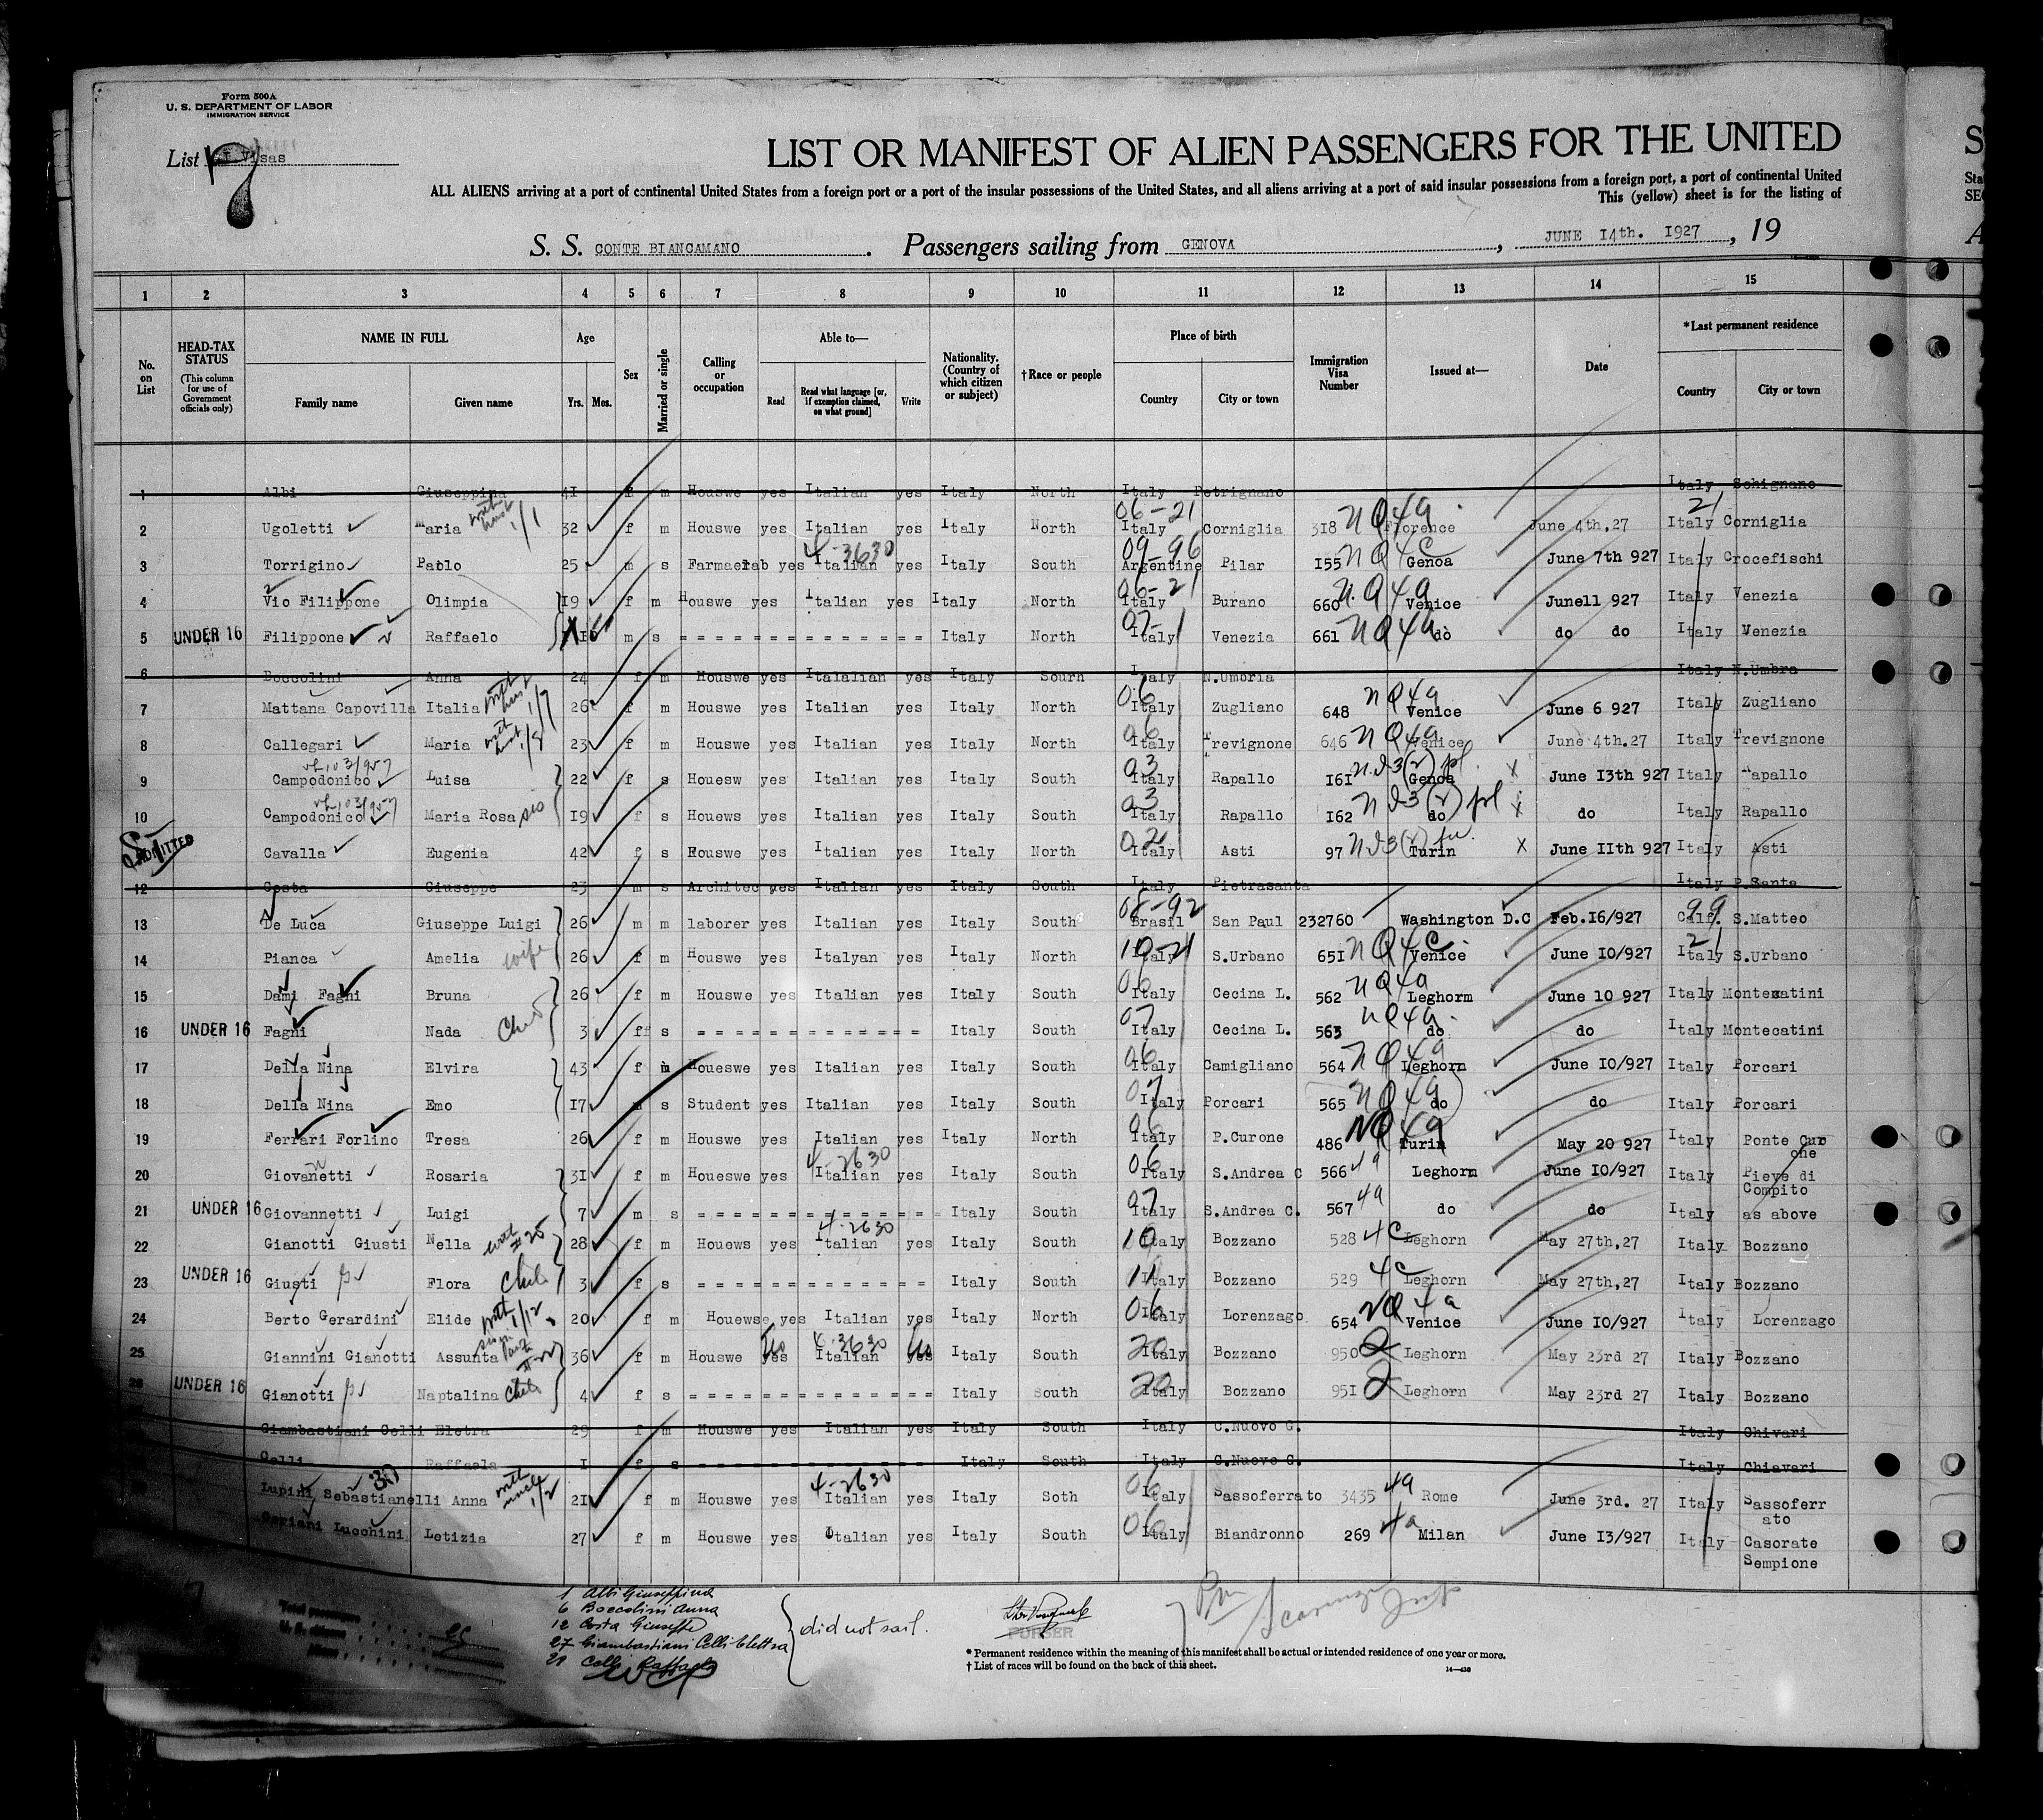 Form 500A
U. S. DEPARTMENT OF LABOR
IMMIGRATION SERVICE
List 7 Visas
LIST OR MANIFEST OF ALIEN PASSENGERS FOR THE UNITED
ALL ALIENS arriving at a port of continental United States from a foreign port or a port of the insular possessions of the United States, and all aliens arriving at a port of said insular possessions from a foreign port, a port of continental United
This (yellow) sheet is for the listing of
S. S. CONTE BIANCAMANO. Passengers sailing from GENOVA, JUNE I4th. I927, 19
1 2 3 4 5 6 7 8 9 10 11 12 13 14 15
No. on List
HEAD-TAX STATUS
(This column for use of Government officials only)
NAME IN FULL
Family name Given name
Age
Yrs. Mos.
Sex
Married or single
Calling or occupation
Able to—
Read
Read what language [or, if exemption claimed, on what ground]
Write
Nationality. (Country of which citizen or subject)
† Race or people
Place of birth
Country City or town
Immigration Visa Number
Issued at—
Date
*Last permanent residence
Country City or town
1 Albi Giuseppina 4I f m Houswe yes Italian yes Italy North Italy Petrignano Italy Schignano
2 Ugoletti Maria with husb 1/1 32 f m Houswe yes Italian yes Italy North 06-21 Italy Corniglia 3I8 NQ4a Florence June 4th,27 21 Italy Corniglia
3 Torrigino Pablo 25 m s Farmaerlab yes 4-3630 Italian yes Italy South 09-96 Argentine Pilar I55 NQ4C Genoa June 7th 927 Italy Crocefischi
4 Vio Filippone Olimpia I9 f m Houswe yes Italian yes Italy North 06-21 Italy Burano 660 NQ4a Venice JuneII 927 Italy Venezia
5 UNDER 16 Filippone Raffaelo m s Italy North 07 Italy Venezia 66I NQ4a do do do Italy Venezia
6 Boccolini Anna 24 f m Houswe yes Italalian yes Italy Sourn Italy N.Umbria Italy N.Umbra
7 Mattana Capovilla Italia with husb 1/7 26 f m Houswe yes Italian yes Italy North 06 Italy Zugliano 648 NQ4a Venice June 6 927 Italy Zugliano
8 Callegari Maria with husb 1/8 23 f m Houswe yes Italian yes Italy North 06 Italy Trevignone 646 NQ4a Venice June 4th.27 Italy Trevignone
9 Campodonico Luisa 22 f s Houesw yes Italian yes Italy South 03 Italy Rapallo I6I Genoa X June I3th 927 Italy Rapallo
10 Campodonico Maria Rosa sis I9 f s Houews yes Italian yes Italy South 03 Italy Rapallo I62 do X do Italy Rapallo
ADMITTED Cavalla Eugenia 42 f s Houswe yes Italian yes Italy North 02 Italy Asti 97 Turin X June IIth 927 Italy Asti
12 Costa Giuseppe 23 m s Architec yes Italian yes Italy South Italy Pietrasanta Italy P.Santa
13 De Luca Giuseppe Luigi 26 m m laborer yes Italian yes Italy South 08-92 Brasil San Paul 232760 Washington D.C Feb.I6/927 99 Calf. S.Matteo
14 Pianca Amelia wife 26 f m Houswe yes Italyan yes Italy North 10-21 Italy S.Urbano 65I NQ4C Venice June IO/927 21 Italy S.Urbano
15 Dami Fagni Bruna 26 f m Houswe yes Italian yes Italy South 06 Italy Cecina L. 562 NQ4a Leghorm June IO 927 Italy Montecatini
16 UNDER 16 Fagni Nada Child 3 f s Italy South 07 Italy Cecina L. 563 NQ4a do do Italy Montecatini
17 Della Nina Elvira 43 f m Houeswe yes Italian yes Italy South 06 Italy Camigliano 564 NQ4a Leghorn June IO/927 Italy Porcari
18 Della Nina Emo I7 m s Student yes Italian yes Italy South 07 Italy Porcari 565 NQ4a do do Italy Porcari
19 Ferrari Forlino Tresa 26 f m Houswe yes Italian yes Italy North 06 Italy P.Curone 486 NQ4a Turin May 20 927 Italy Ponte Curone
20 Giovanetti Rosaria 3I f m Houeswe yes 4-2630 Italian yes Italy South 06 Italy S.Andrea C 566 4a Leghorm June IO/927 Italy Pieve di Compito
21 UNDER 16 Giovannetti Luigi 7 m s Italy South 07 Italy S.Andrea C. 567 4a do do Italy as above
22 Gianotti Giusti Nella with #25 28 f m Houews yes 4-2630 Italian yes Italy South 10 Italy Bozzano 528 4C Leghorn May 27th,27 Italy Bozzano
23 UNDER 16 Giusti Flora Child 3 f s Italy South 11 Italy Bozzano 529 4C Leghorn May 27th,27 Italy Bozzano
24 Berto Gerardini Elide with 1/12 20 f m Houewse yes Italian yes Italy North 06 Italy Lorenzago 654 NQ4a Venice June IO/927 Italy Lorenzago
25 Giannini Gianotti Assunta 36 f m Houswe yes No 4-3630 Italian yes No Italy South 20 Italy Bozzano 950 2 Leghorn May 23rd 27 Italy Bozzano
26 UNDER 16 Gianotti Naptalina Child 4 f s Italy South 20 Italy Bozzano 95I 2 Leghorn May 23rd 27 Italy Bozzano
Giambastiani Celli Eletra 29 f m Houswe yes Italian yes Italy South Italy C.Nuovo G. Italy Chivari
Celli Raffaela I f s Italy South Italy C.Nuovo G. Italy Chiavari
Lupini Sebastianelli Anna with uncle 1/2 2I f m Houswe yes 4-2630 Italian yes Italy Soth 06 Italy Sassoferrato 3435 4a Rome June 3rd. 27 Italy Sassoferrato
30 Lucchini Letizia 27 f m Houswe yes Italian yes Italy South 06 Italy Biandronno 269 4a Milan June I3/927 Italy Casorate Sempione
Total passengers 25
U. S. citizens
Aliens
1 Albi Giuseppina
6 Boccolini Anna
12 Costa Giuseppe
27 Giambastiani Celli Elettra
Celli Raffaela
did not sail.
PURSER
* Permanent residence within the meaning of this manifest shall be actual or intended residence of one year or more.
† List of races will be found on the back of this sheet.
14—430